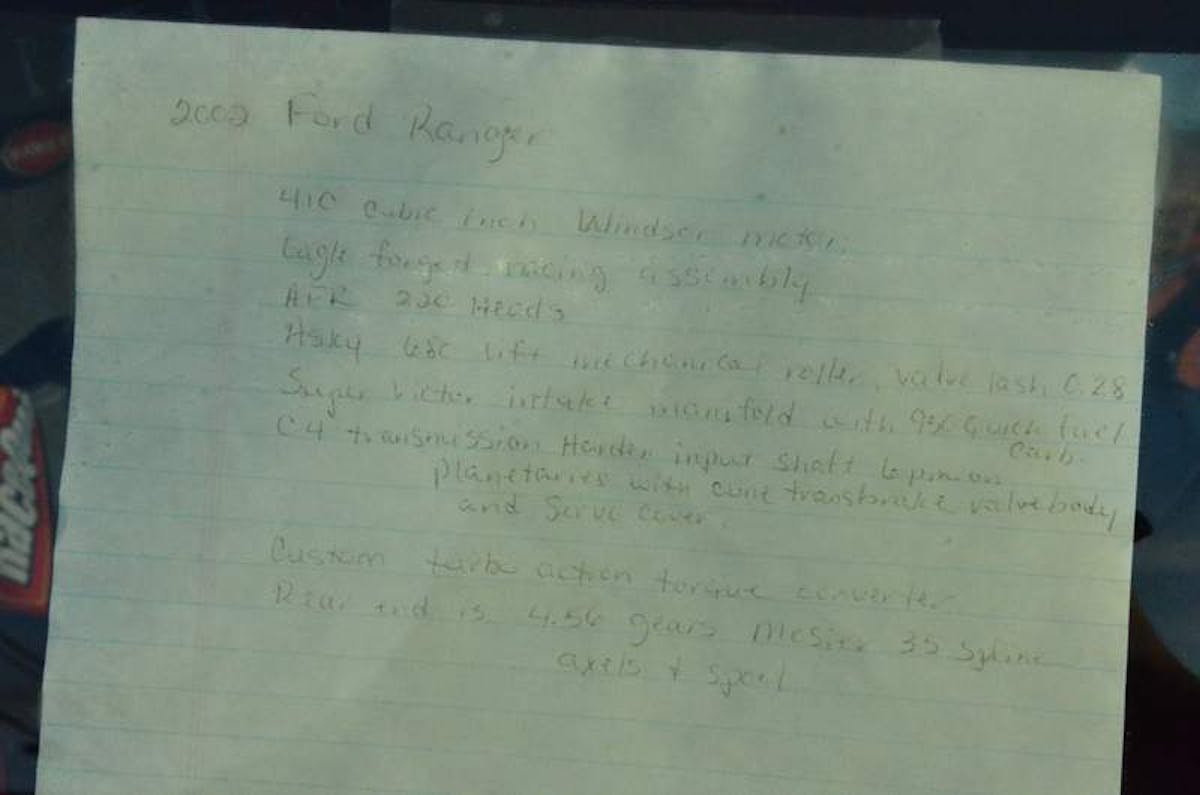 2002 Ford Ranger
410 Cubic inch Windsor motor,
Eagle forged racing assembly
AFR 220 Heads
680 lift mechanical roller, valve lash 0.28
Super Victor intake manifold with 950 Quick fuel
Carb.
C4 transmission Harden input shaft 6 pinion
planetaries with transbrake valve body
and Servo cover.
Custom turbo action torque converter
Rear end is 4.56 gears 35 Spline
axels & Spool